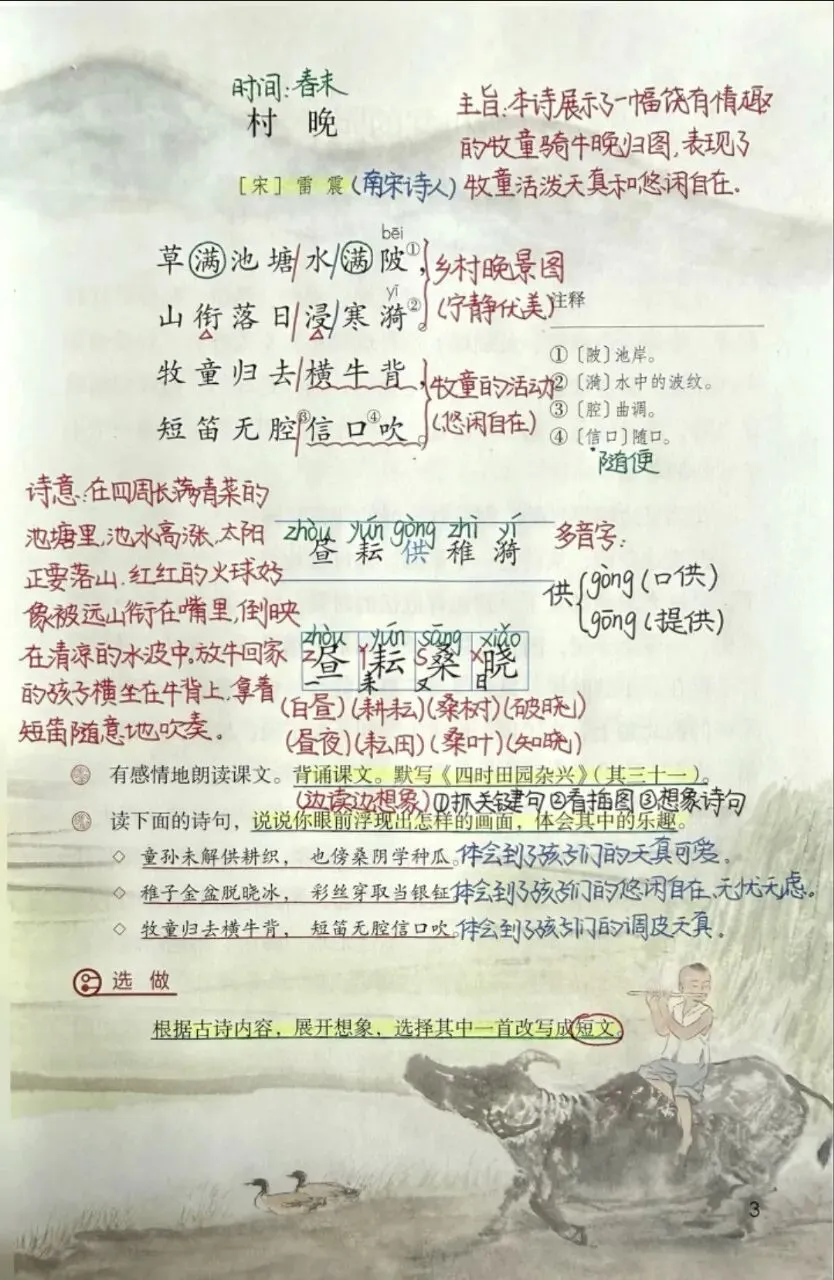 时间:春末
村 晚
主旨:本诗展示了一幅饶有情趣
的牧童骑牛晚归图,表现了
牧童活泼天真和悠闲自在.
[宋] 雷 震(南宋诗人)
bēi
草满池塘/水/满陂①,
yī
山衔落日/浸/寒漪②。
乡村晚景图
(宁静优美)
牧童归去/横牛背,
短笛无腔③/信口④吹。
牧童的活动
(悠闲自在)
注释
①〔陂〕池岸。
②〔漪〕水中的波纹。
③〔腔〕曲调。
④〔信口〕随口。
随便
诗意:在四周长满青菜的
池塘里,池水高涨,太阳
正要落山.红红的火球好
像被远山衔在嘴里,倒映
在清凉的水波中。放牛回家
的孩子横坐在牛背上,拿着
短笛随意地吹奏。
zhòu yún gòng zhì yí
昼 耘 供 稚 漪
多音字:
供{gòng(口供)
gōng(提供)
zhòu yún sāng xiǎo
Z昼 Y耘 S桑 X晓
一 耒 又 日
(白昼)(耕耘)(桑树)(破晓)
(昼夜)(耘田)(桑叶)(知晓)
有感情地朗读课文。背诵课文。默写《四时田园杂兴》(其三十一)。
(边读边想象)①抓关键句②看插图③想象诗句
读下面的诗句,说说你眼前浮现出怎样的画面,体会其中的乐趣。
◇ 童孙未解供耕织, 也傍桑阴学种瓜。体会到了孩子们的天真可爱。
◇ 稚子金盆脱晓冰, 彩丝穿取当银钲。体会到了孩子们的悠闲自在、无忧无虑。
◇ 牧童归去横牛背, 短笛无腔信口吹。体会到了孩子们的调皮天真。
选 做
根据古诗内容,展开想象,选择其中一首改写成短文。
3